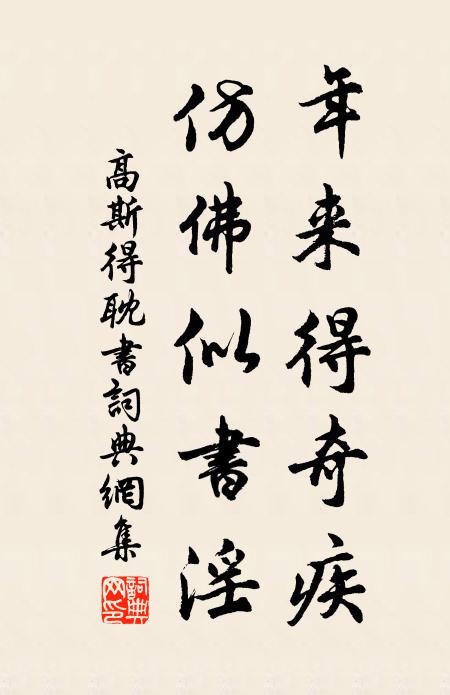 年来得奇疾
仿佛似書淫
高斯得耽書詞典網集
詞典网印